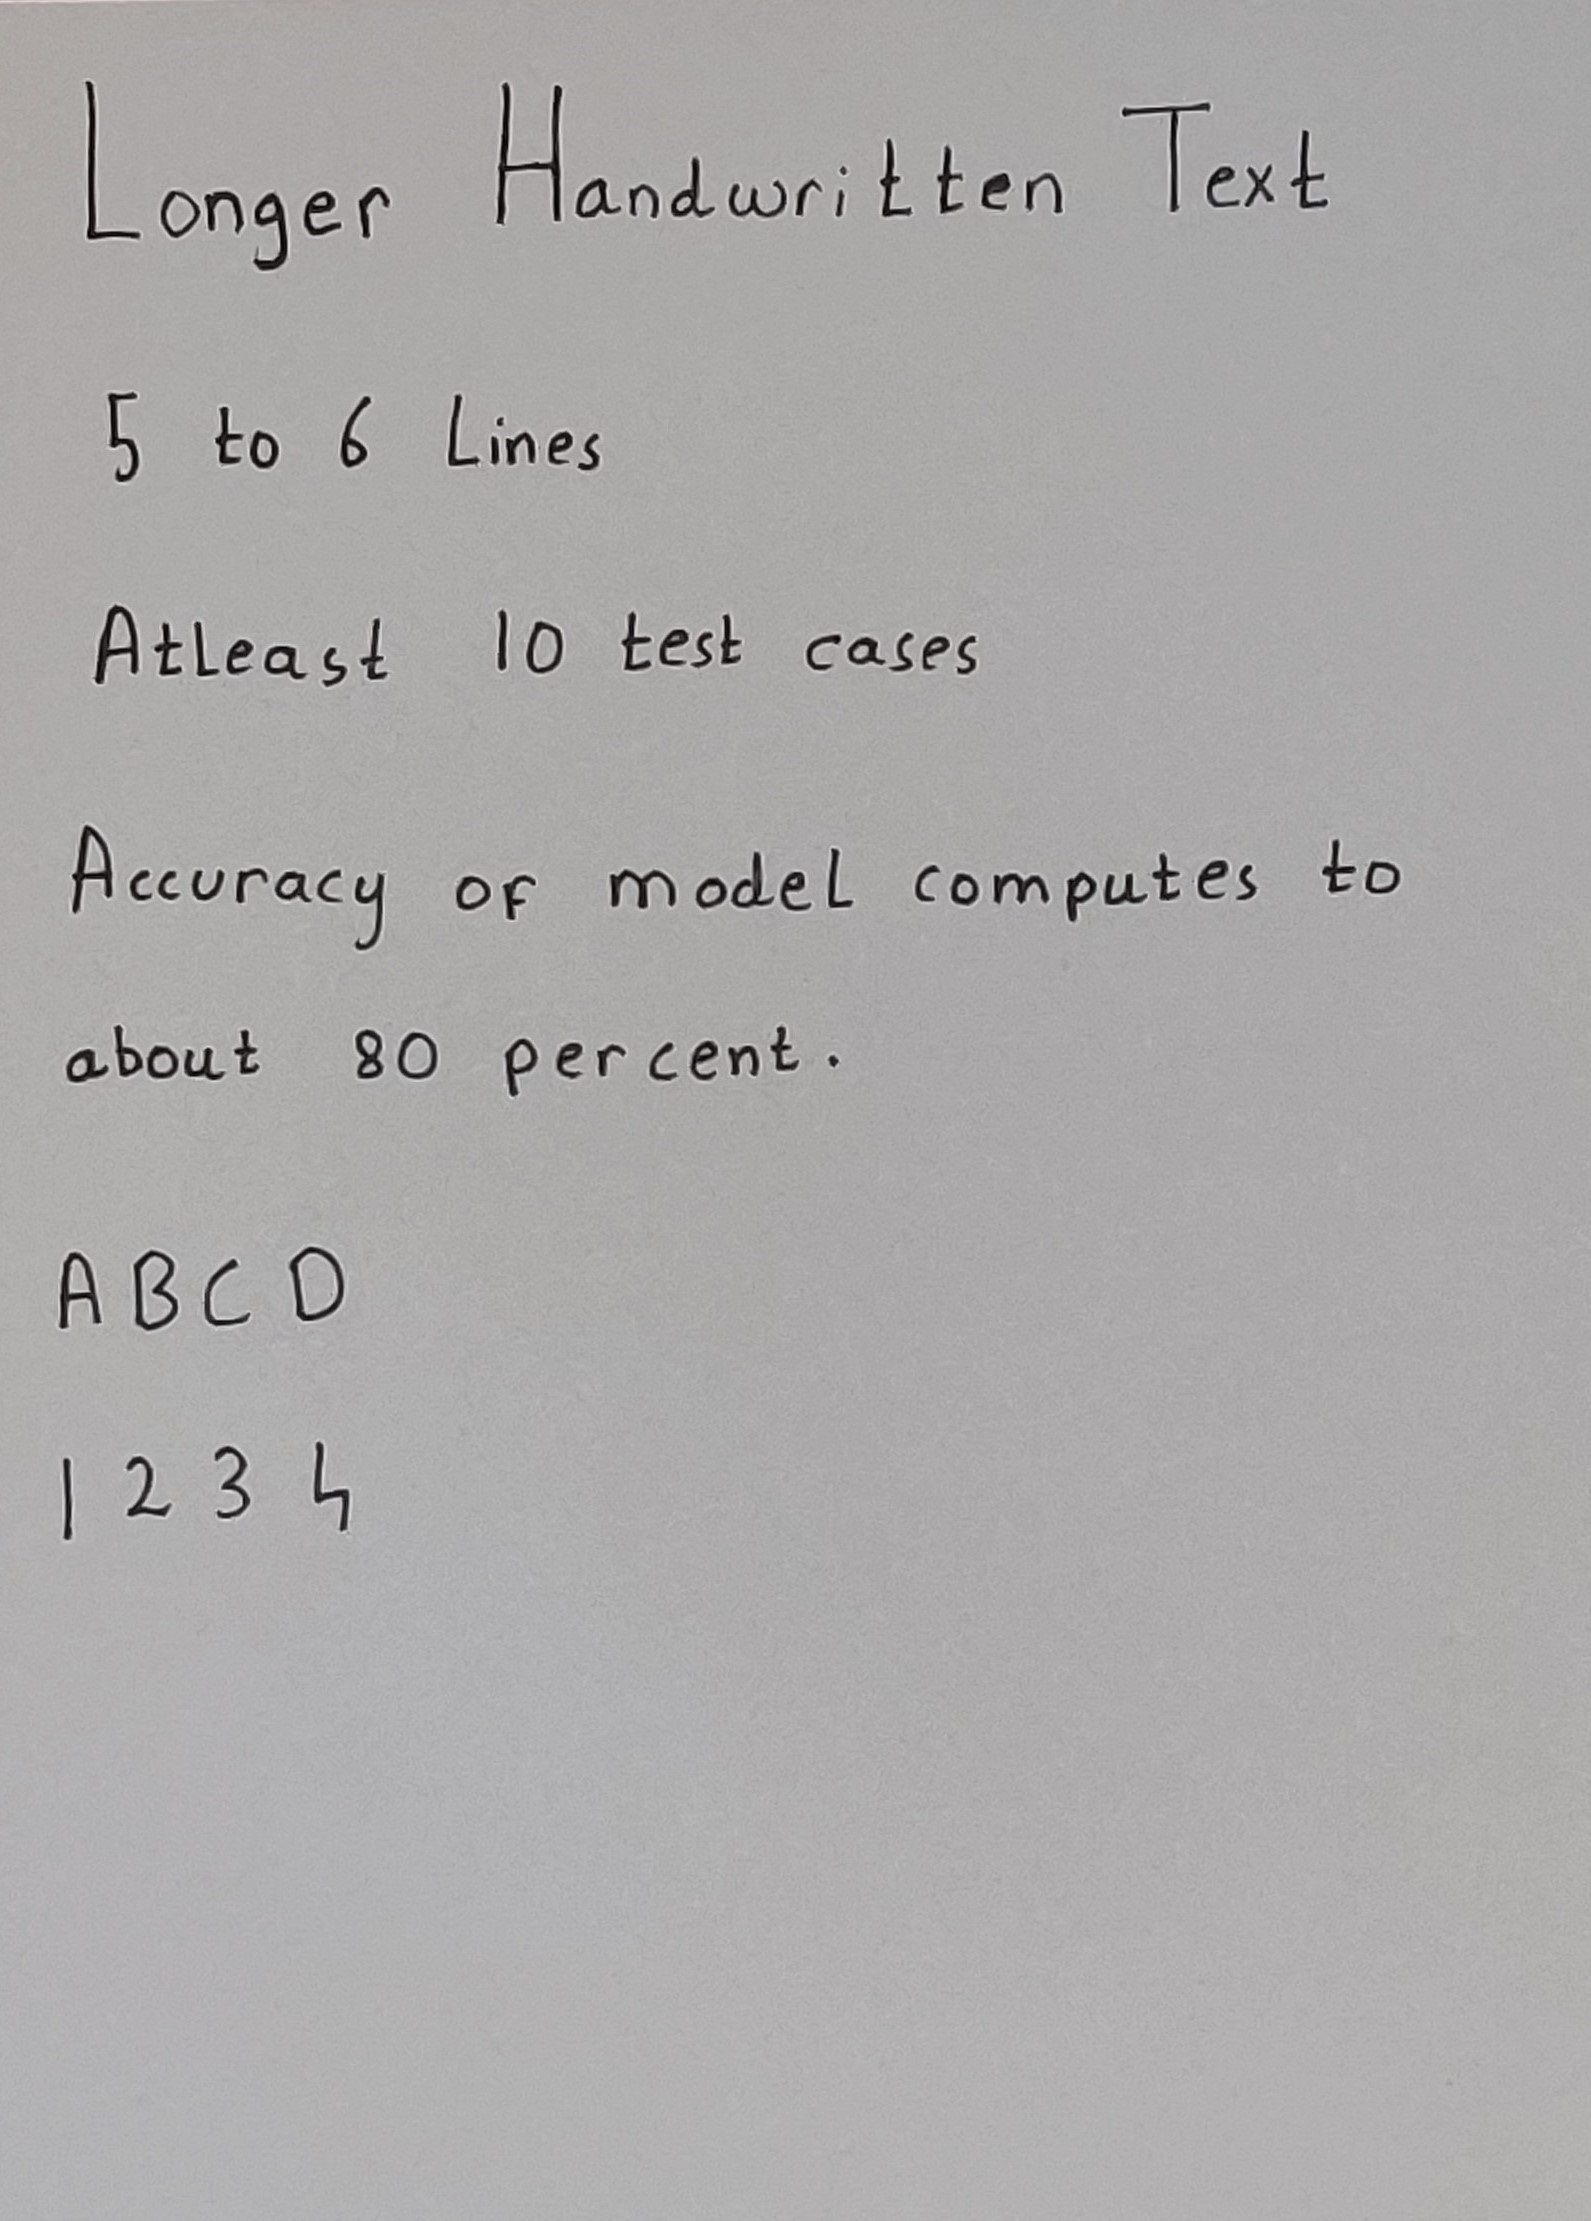 Longer Handwritten Text
5 to 6 Lines
AtLeast 10 test cases
Accuracy of model computes to
about 80 percent.
A B C D
1 2 3 4